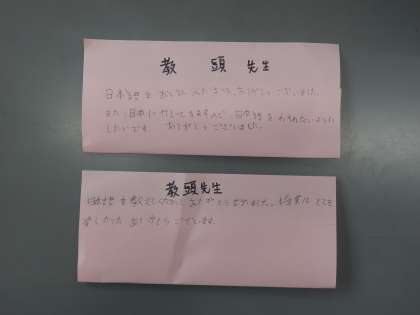 教頭先生
日本語をおしえてくださって、ありがとうございました。
また、日本に
日本語をわすれないように
したいです。ありがとうございました。
教頭先生
日本語を教えてくださってありがとうございました。授業はとても
楽しかった ありがとうございました